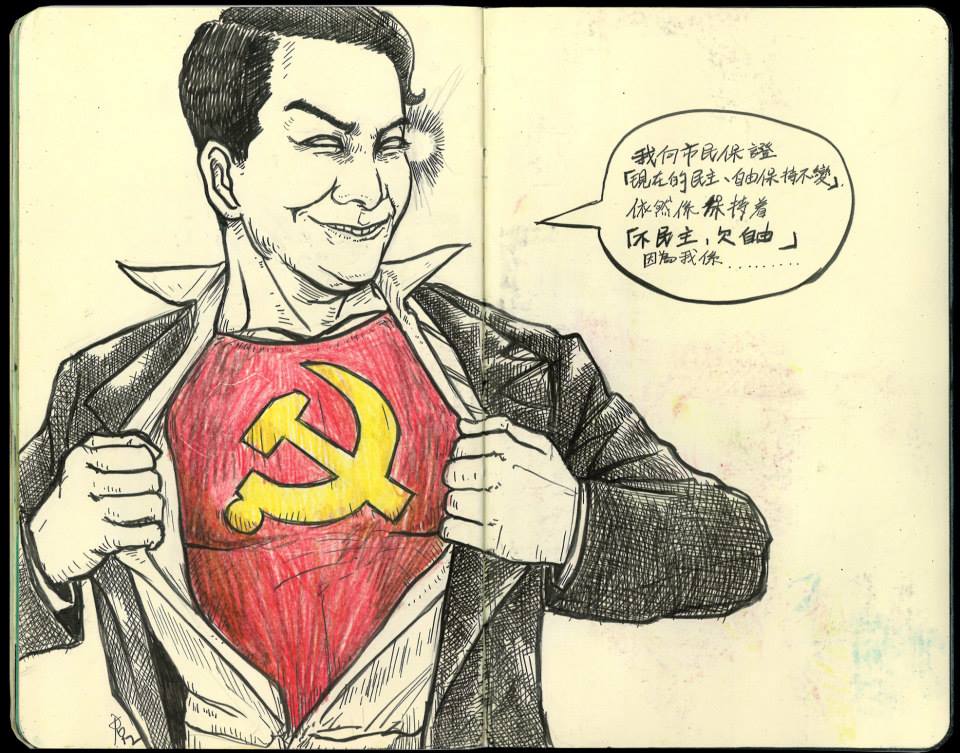 我向市民保證
「現在的民主、自由保持不變」.
依然係保持着
「不民主、欠自由」
因為我係.........